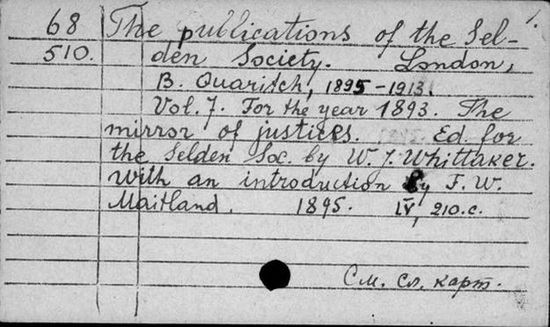 68 The publications of the Sel-
510. den Society. London,
B. Quaritch, 1895-1913.
Vol. 7. For the year 1893. The
mirror of justices. Ed. for
the Selden Soc. by W. J. Whittaker.
With an introduction by F. W.
Maitland. 1895. IV, 210.c.
См. сл. карт.